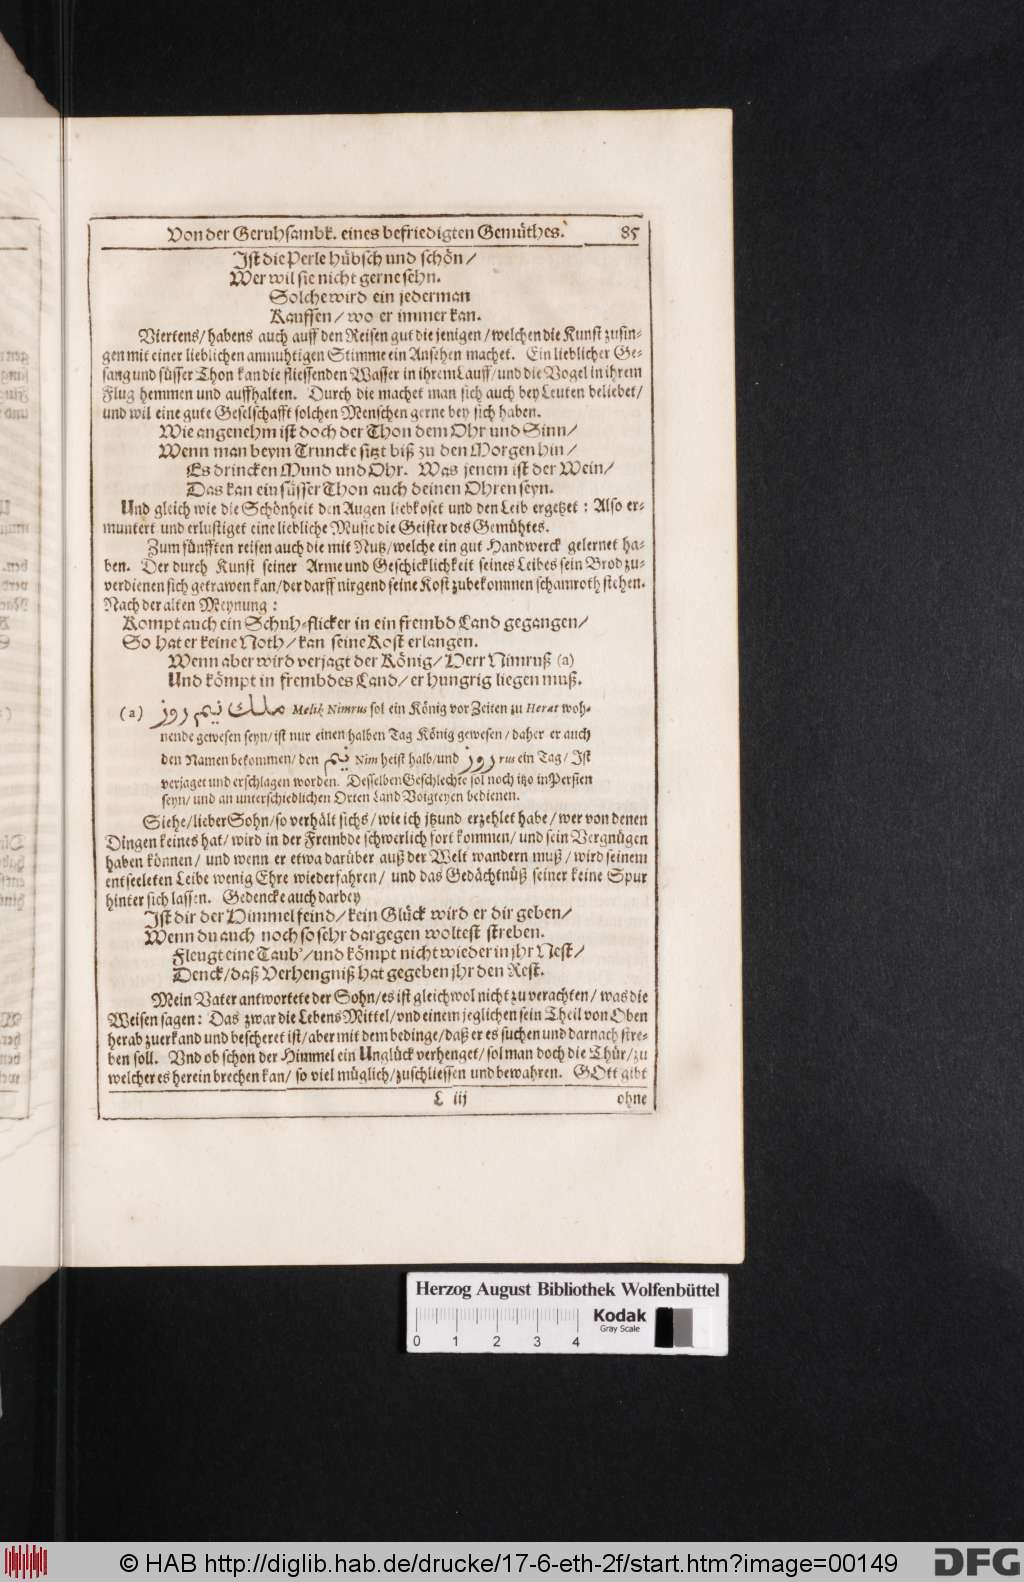 Von der Geruhsambk. eines befriedigten Gemühtes. 85
Ist die Perle hübsch und schön /
Wer wil sie nicht gerne sehn.
Solche wird ein jederman
Kauffen / wo er immer kan.
Viertens / habens auch auff den Reisen gut die jenigen / welchen die Kunst zu sin-
gen mit einer lieblichen anmuhtigen Stimme ein Ansehen machet. Ein lieblicher Ge-
sang und süsser Thon kan die fliessenden Wasser in ihrem Lauff / und die Vogel in ihrem
Flug hemmen und auffhalten. Durch die machet man sich auch bey Leuten beliebet /
und wil eine gute Geselschafft solchen Menschen gerne bey sich haben.
Wie angenehm ist doch der Thon dem Ohr und Sinn /
Wenn man beym Truncke sitzt biß zu den Morgen hin /
Es drincken Mund und Ohr. Was jenem ist der Wein /
Das kan ein süsser Thon auch deinen Ohren seyn.
Und gleich wie die Schönheit den Augen liebkoset und den Leib ergetzet : Also er-
muntert und erlustiget eine liebliche Music die Geister des Gemühtes.
Zum fünfften reisen auch die mit Nutz / welche ein gut Handwerck gelernet ha-
ben. Der durch Kunst seiner Arme und Geschicklichkeit seines Leibes sein Brod zu-
verdienen sich getrawen kan / der darff nirgend seine Kost zubekommen schamroth stehen.
Nach der alten Meynung :
Kompt auch ein Schuh-flicker in ein frembd Land gegangen /
So hat er keine Noth / kan seine Kost erlangen.
Wenn aber wird verjagt der König / Herr Nimruß (a)
Und kömpt in frembdes Land / er hungrig liegen muß.
(a) ملك نيم روز Melik Nimrus sol ein König vor Zeiten zu Herat woh-
nende gewesen seyn / ist nur einen halben Tag König gewesen / daher er auch
den Namen bekommen / den نيم Nim heist halb / und روز rus ein Tag / Ist
verjaget und erschlagen worden. Desselben Geschlechte sol noch itzo in Persien
seyn / und an unterschiedlichen Orten Land Voigteyen bedienen.
Siehe / lieber Sohn / so verhält sichs / wie ich jtzund erzehlet habe / wer von denen
Dingen keines hat / wird in der Frembde schwerlich fort kommen / und sein Vergnügen
haben können / und wenn er etwa darüber auß der Welt wandern muß / wird seinem
entseeleten Leibe wenig Ehre wiederfahren / und das Gedächtnüß seiner keine Spur
hinter sich lassen. Gedencke auch darbey
Ist dir der Himmel feind / kein Glück wird er dir geben /
Wenn du auch noch so sehr dargegen woltest streben.
Fleugt eine Taub' / und kömpt nicht wieder in jhr Nest /
Denck / daß Verhengniß hat gegeben jhr den Rest.
Mein Vater antwortete der Sohn / es ist gleichwol nicht zu verachten / was die
Weisen sagen : Das zwar die Lebens Mittel / vnd einem jeglichen sein Theil von Oben
herab zuerkand und bescheret ist / aber mit dem bedinge / daß er es suchen und darnach stre-
ben soll. Vnd ob schon der Himmel ein Unglück verhenget / sol man doch die Thür / zu
welcher es herein brechen kan / so viel müglich / zuschliessen und bewahren. GOtt gibt
L iij ohne
Herzog August Bibliothek Wolfenbüttel
0 1 2 3 4
Kodak
Gray Scale
© HAB http://diglib.hab.de/drucke/17-6-eth-2f/start.htm?image=00149
DFG